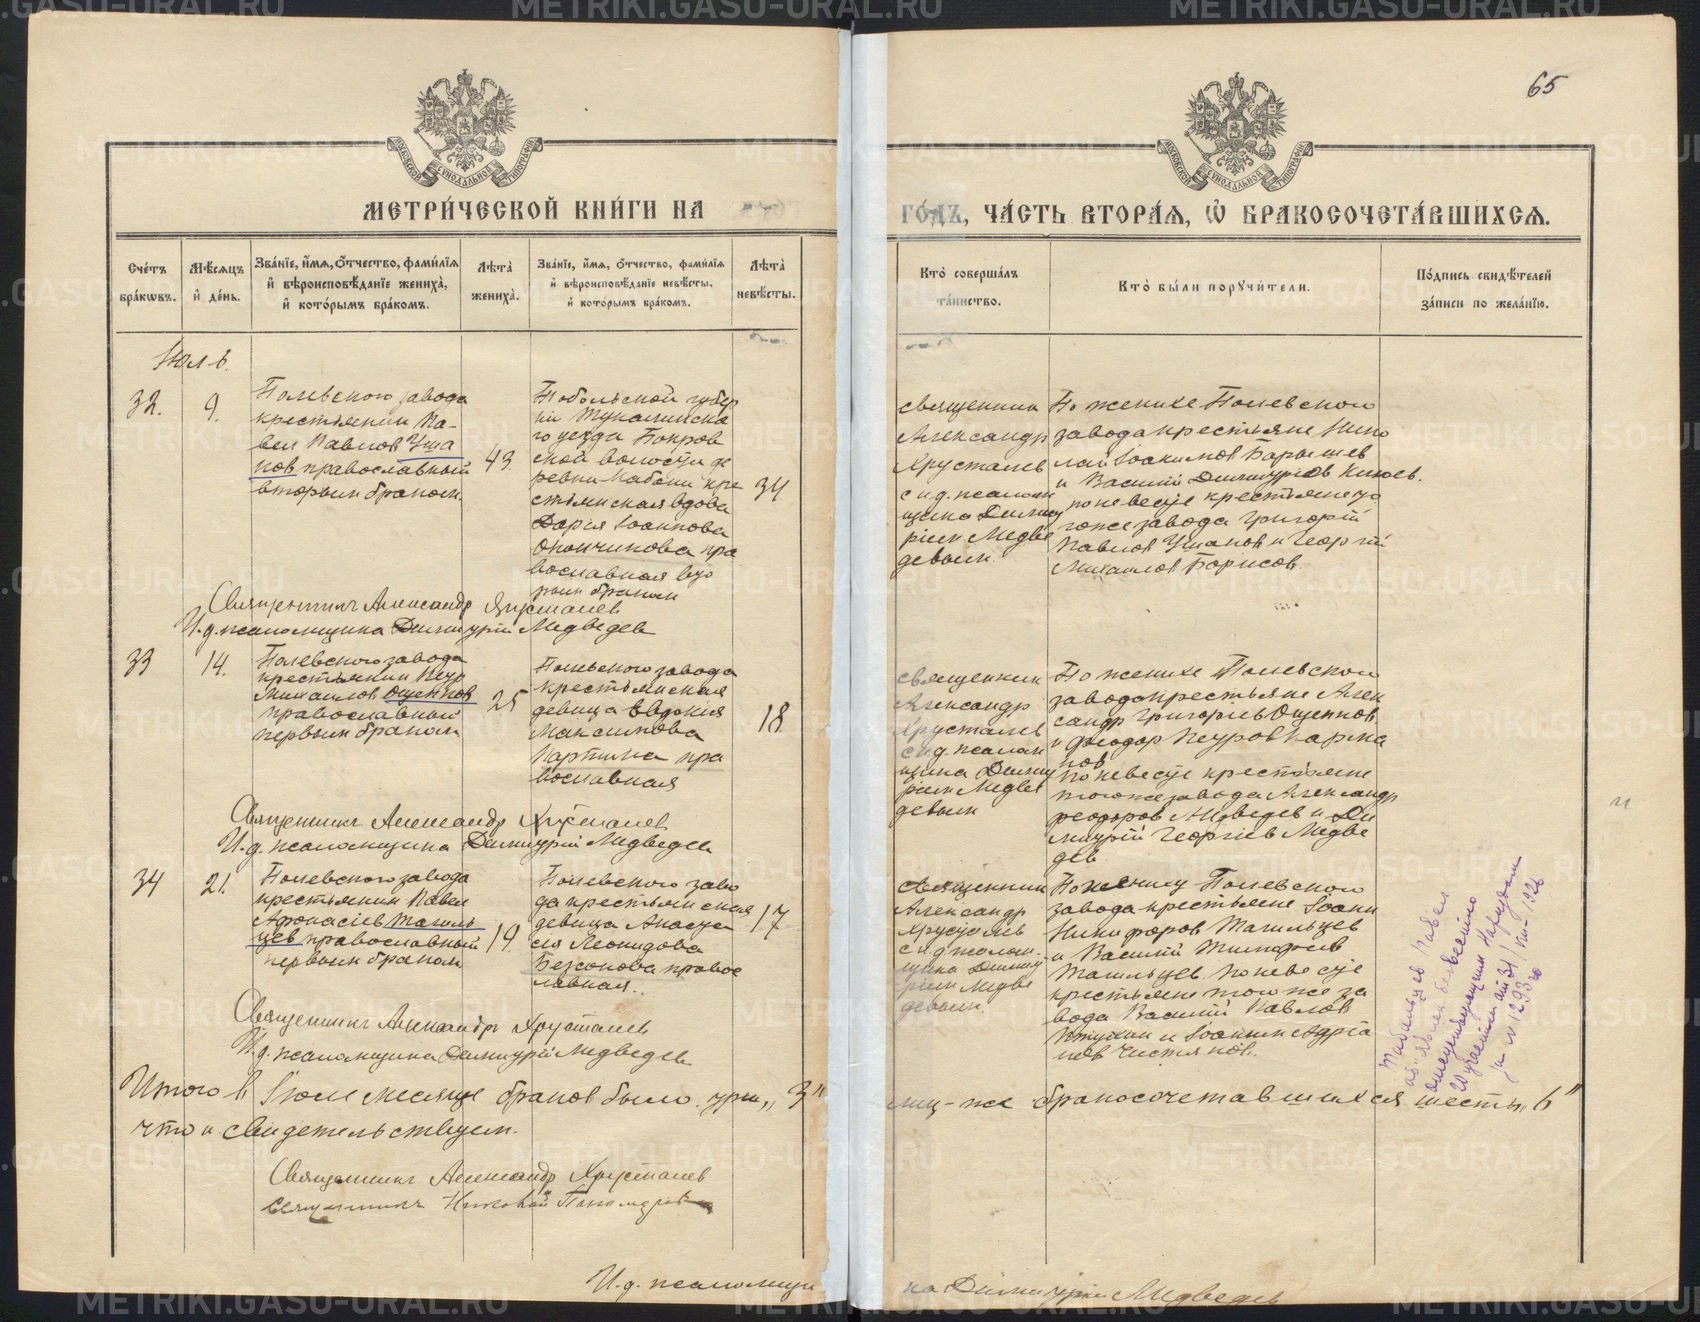 65
МОСКОВСКОЙ СѴНОДАЛЬНОЙ ТИПОГРАФІИ
МОСКОВСКОЙ СѴНОДАЛЬНОЙ ТИПОГРАФІИ
МЕТРИ́ЧЕСКОЙ КНИ́ГИ НА
ГО́ДЪ, ЧА́СТЬ ВТОРА́Ѧ, Ѽ БРАКОСОЧЕТА́ВШИХСѦ.
Сче́тъ бра́кѡвъ.
Мѣ́сѧцъ и҆ де́нь.
Зва́нїе, и҆́мѧ, ѻ҆́тчество, фами́лїѧ
и҆ вѣроисповѣ́данїе жениха̀,
и҆ кото́рымъ бра́комъ.
Лѣ́та̀ жениха̀.
Зва́нїе, и҆́мѧ, ѻ҆́тчество, фами́лїѧ
и҆ вѣроисповѣ́данїе невѣ́сты,
и҆ кото́рымъ бра́комъ.
Лѣ́та̀ невѣ́сты.
Кто̀ соверша́лъ
та́инство.
Кто̀ бы́ли порꙋчи́тели.
По́дпись свидѣ́телей
за́писи по жела́нїю.
Июль.
32.
9.
Полевского завода
крестьянин Па-
вел Павлов Уша
ков православный
вторым браком.
43.
Тобольской губер
нии Тукалинска
го уезда Покров
ской волости де
ревни Кабани кре
стьянская вдова
Дария Іоаннова
православная вто
рым браком
34
священник
Александр
Хрусталев
с и.д. псалом
щика Димит
рием Медве
девым.
По женихе Полевского
завода крестьяне Нико
лай Іоакимов Барышев
и Василий Димитриев
по невесте крестьяне то
гоже завода Григорій
Павлов Ушаков и Георгій
Михаилов Борисов.
Священник Александр Хрусталев
И.д. псаломщика Димитрій Медведев
33
14.
Полевского завода
крестьянин Петр
Михаилов Ощепков
православный
первым браком
25
Полевского завода
крестьянская
девица Евдокия
Максимова
пра
вославная
18
священник
Александр
Хрусталев
с и.д. псалом
щика Димит
рием Медве
девым
По женихе Полевского
завода крестьяне Алек
сандр Григорьев Ощепков
и Феодор Петров Карма
нов
по невесте крестьяне
тогоже завода Александр
Феодоров Медведев и Ди
митрій Георгіев Медве
дев
Священник Александр Хрусталев
И.д. псаломщика Димитрій Медведев
34
21.
Полевского завода
крестьянин Павел
Афонасіев Тагиль
цев православный
первым браком
19.
Полевского заво
да крестьянская
девица Анаста
сія Леонидова
Безсонова правос
лавная.
17
священник
Александр
Хрусталев
с и.д. псалом
щика Димит
рием Медве
девым.
По жениху Полевского
завода крестьяне Іоанн
Никифоров Тагильцев
и Василий Тимофеев
Тагильцев по невесте
крестьяне того же за
вода Василий Павлов
и Іоаким Адріа
нов Чистяков.
Священник Александр Хрусталев
И.д. псаломщика Димитрій Медведев
Тагильцев Павел
Аф. безвестно
отсутствующим Нарсудом
20 участка от 31/VIII-1926
за N 1293
Итого в Іюле месяце браков было три „3”
лиц-же бракосочетавшихся шесть „6”
что и свидетельствуем.
Священник Александр Хрусталев
священник Николай Пономарев
И.д. псаломщи
ка Димитрій Медведев
METRIKI.GASU-URAL.RU